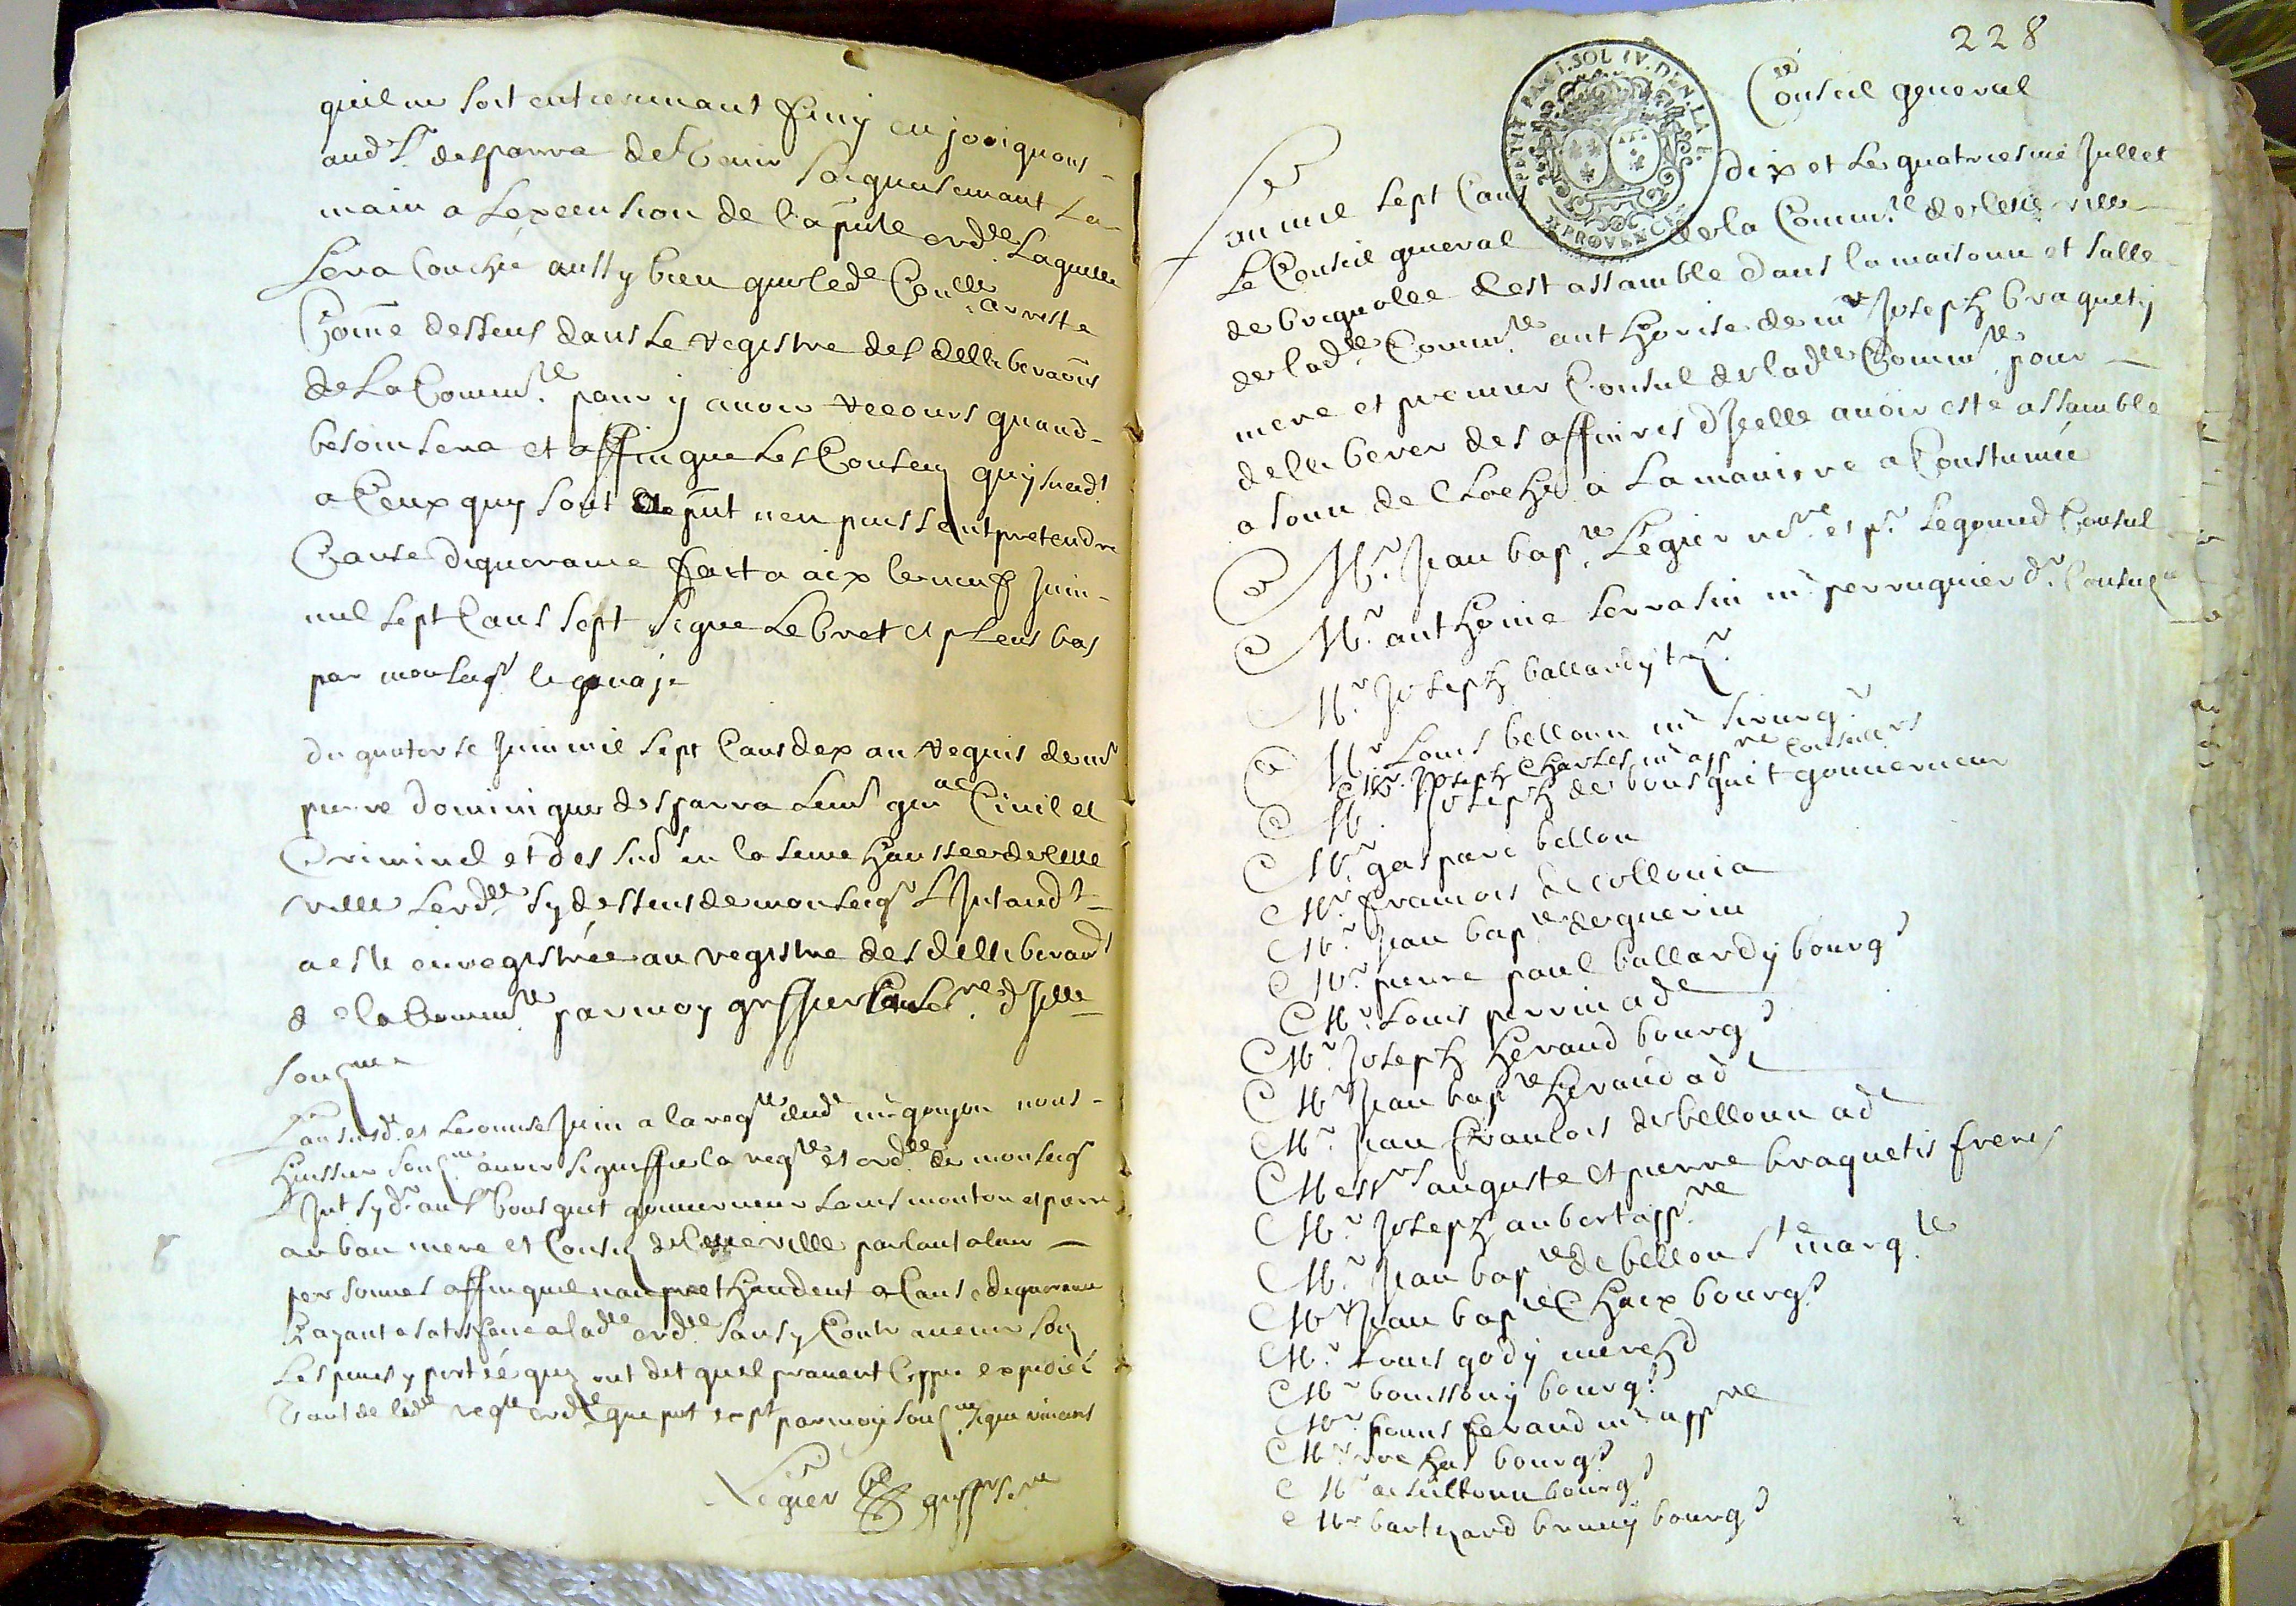 quil ne soit entierement finy en joiignons
aud Sr desparra de tenir soigneusemant la
main a lexecution de la pnte ordce laquelle
sera couchée aussy bien que led Conlle arreste
Come dessus dans le registre des delliberaons
de La Commté pour y avoir recours quand
besoin sera et affin que les Consuy quy sucdt
a Ceux quy sont de pnt nen puissent pretendre
Cause dignorance fait a aix le neuf Juin
mil sept Cens sept signe Lebret et plus bas
par monseigr
du quatorse Juin mil sept Cens dex au requis de mr
pierre dominique desparra Leut gen al Civil et
Criminel et des sud en la senechaussee de cette
ville Lordce sy dessus de monseigr L Intandt
a este enregistrée au registre des delliberaons
de la Commté par moy greffier dIcelle
soubne
Lan susd et Le onnse Juin a la reqte dud mr goujon nous
huissier soubné avoir signiffie la reqte et ordce de monseigr
L Int sy dt au Sr bousquet gouverneur Louis mouton et pierre
au bau mere et Consuy de cette ville parlant a leur
personnes affin quil nan prethandent a Cause dignorance
hayant a satisfaire a lad ordce sans y Contrauenir soubz
Les peines y portée quy ont dit quil pranent Coppie expediée
tant de lad reqte ordce que pnt expt par moy soubné signe vincens
Legier greffre
228
Conseil general
Lan mil sept Cens dix et Le quatriesme Jullet
Le Conseil general de la Commté de cette ville
de brignolle sest assamble dans la maison et salle
de lad Commté authorise de mr Joseph braquety
mere et premier Consul de lad Commté pour
delliberer des affaires dJcelle avoir este assamble
a sonn de Cloche a La maniere a Coustumée
Mr Jean bapte Legier nore et pr segond Consul
Mr anthoine serrasin me perruquier dr Consul
Mr Joseph ballardy trr
Mr Louis bellonn me sirurgn
Mr Joseph Charles me appre Conseillers
Mr Joseph de bousquet gouverneur
Mr gaspard bellon
Mr francois de collonia
Mr Jean bapte de guerin
Mr pierre paul ballardy bourgs
Mr Louis perrin adt
Mr Joseph heraud bourgs
Mr Jean bapte heraud adt
Mr Jean francois de bellonn adt
Messrs auguste et pierre braquetis freres
Mr Joseph aubert appre
Mr Jean bapte de bellon ste margte
Mr Jean bapte Chaix bourgs
Mr Louis gody merchd
Mr bouissony bourgs
Mr pouns feraud me appre
Mr rochas bourgs
Mr bourgs
Mr barthard bruny bourgs
PETIT PAP. I. SOL IV. DEN. LA F.
PROVENCE